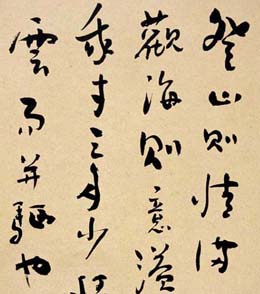 登山則情滿
觀海則意溢
我才之多少
雲而并驅也